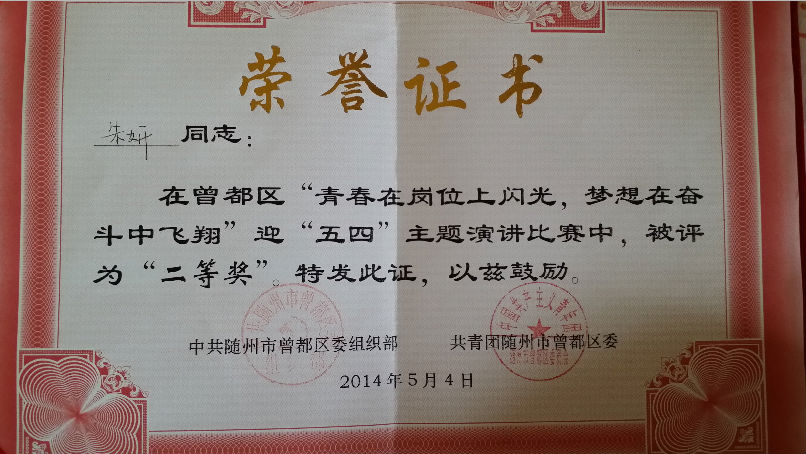 荣誉证书
朱妍 同志：
在曾都区“青春在岗位上闪光，梦想在奋
斗中飞翔”迎“五四”主题演讲比赛中，被评
为“二等奖”。特发此证，以兹鼓励。
中共随州市曾都区委组织部 共青团随州市曾都区委
2014年5月4日
中国共产主义青年团